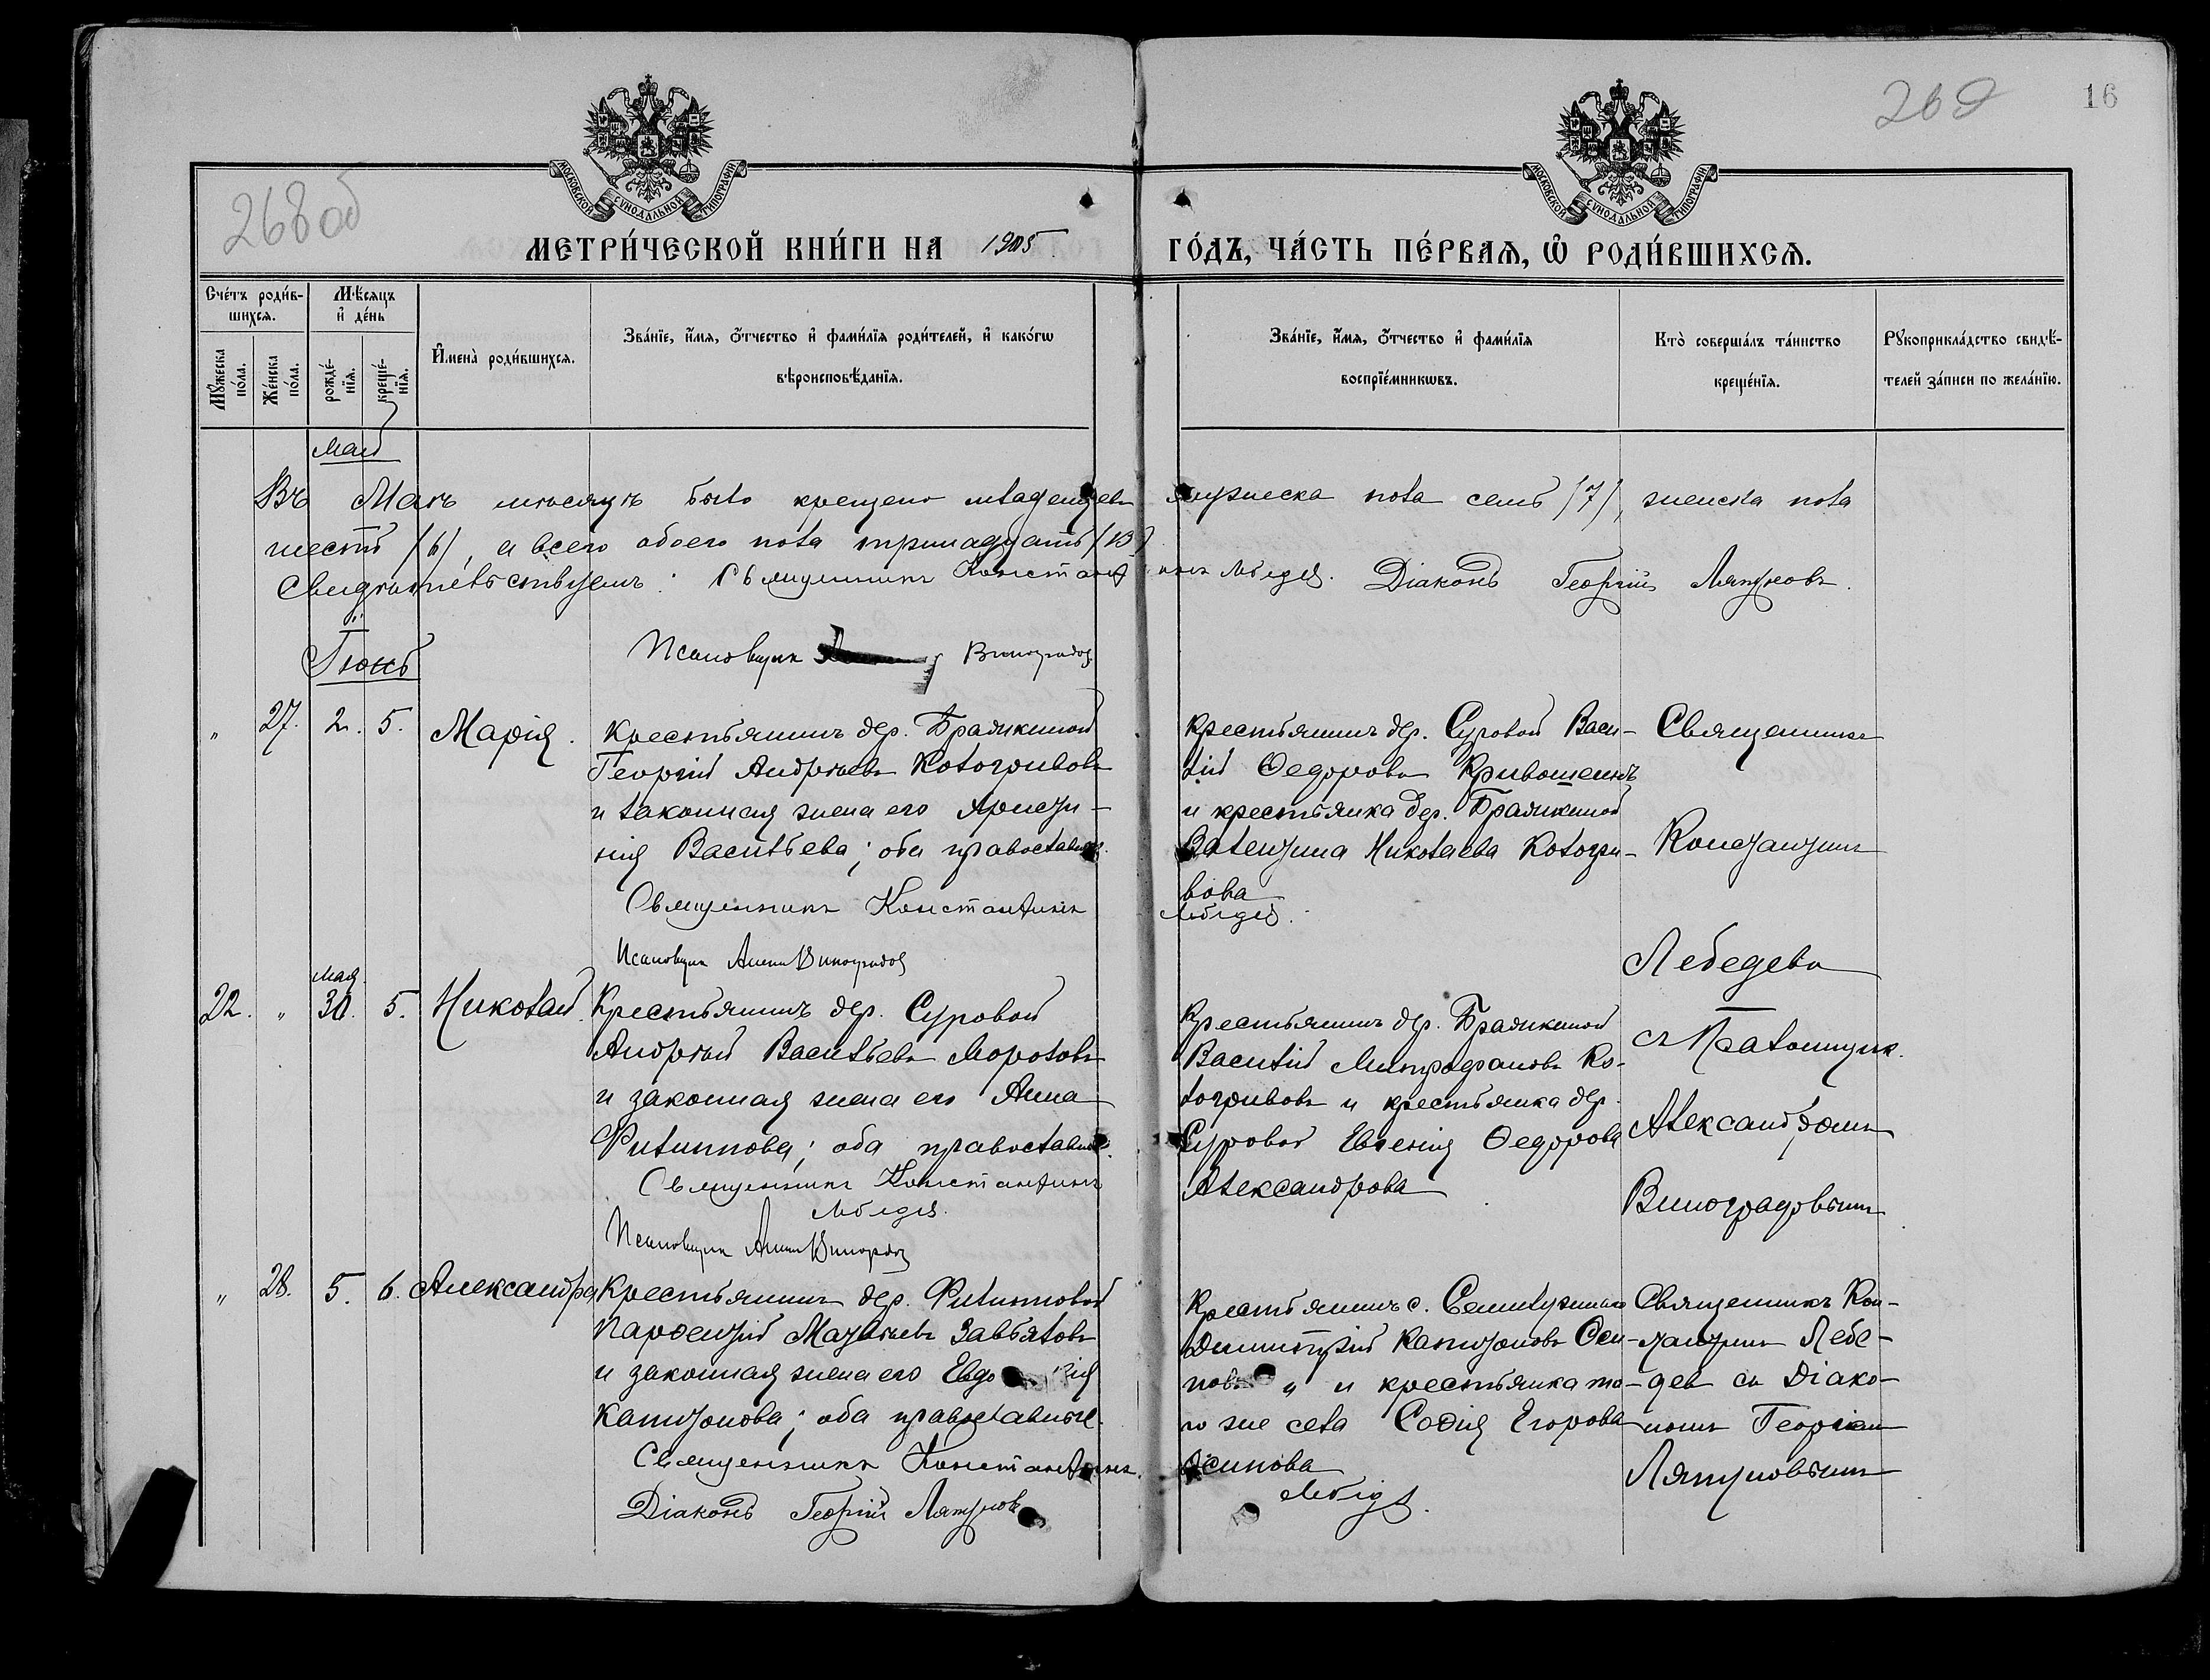 268 об
269
16
МОСКОВСКОЙ СѴНОДАЛЬНОЙ ТИПОГРАФІИ
МОСКОВСКОЙ СѴНОДАЛЬНОЙ ТИПОГРАФІИ
МЕТРИ́ЧЕСКОЙ КНИ́ГИ НА 1905 ГО́ДЪ, ЧА́СТЬ ПЕ́РВАЯ, Ѽ РОДИ́ВШИХСѦ.
Сче́тъ роди́в-
шихсѧ.
Мѣ́сяцъ
и҆ де́нь
Мꙋ́жеска
по́ла.
Же́нска
по́ла.
рожде́-
нїѧ.
креще́-
нїѧ.
И҆мена̀ роди́вшихсѧ.
Зва́нїе, и҆́мѧ, ѻ҆́тчество и҆ фами́лїѧ роди́телей, и҆ како́гѡ
вѣроисповѣ́данїѧ.
Зва́нїе, и҆́мѧ, ѻ҆́тчество и҆ фами́лїѧ
воспрїе́мникѡвъ.
Кто̀ соверша́лъ та́инство
креще́нїѧ.
Рꙋкоприкла́дство свидѣ́-
телей за́писи по жела́нїю.
Май
Въ Маѣ мѣсяцѣ было крещено младенцевъ мужеска пола семь (7), женска пола
шесть (6), а всего обоего пола тринадцать (13)
Свидѣтельствуемъ: Священникъ Константинъ Лебедев. Діаконъ Георгій Ляпуновъ.
Псаломщик Виноградов
Іюнь
" 27. 2. 5. Марія.
Крестьянинъ дер. Бралкиной
Георгій Андреевъ Кологривовъ
и законная жена его
Васильева; оба православн.
Священникъ Константинъ Лебедев.
Псаломщик Виноградов
Крестьянинъ дер. Суровой Васи-
лій Ѳедоровъ Кривошеинъ
и крестьянка дер. Бралкиной
Валентина Николаева Кологри-
вова
Священникъ
Константинъ
Лебедевъ
съ Псаломщик.
Александромъ
Виноградовымъ
22. " Мая 30. 5. Николай.
Крестьянинъ дер. Суровой
Андрей Васильевъ Морозовъ
и законная жена его Анна
Филиппова; оба православн.
Священникъ Константинъ
Лебедев.
Псаломщик Виноградов
Крестьянинъ дер. Бралкиной
Василій Митрофановъ Ко-
логривовъ и крестьянка дер.
Суровой Евгенія Ѳедорова
Александрова
" 28. 5. 6. Александра
Крестьянинъ дер. Филипповой
Парѳентій Завьяловъ
и законная жена его Евдо кія
Капитонова; оба православные.
Священникъ Константинъ Лебедев.
Діаконъ Георгій Ляпуновъ
Крестьянинъ с.
Димитрій Капитоновъ Оси-
повъ " и крестьянка то-
го же села Софія Егорова
Осипова
Священникъ Кон-
стантинъ Лебе-
дев съ Діако-
номъ Георгіем
Ляпуновымъ